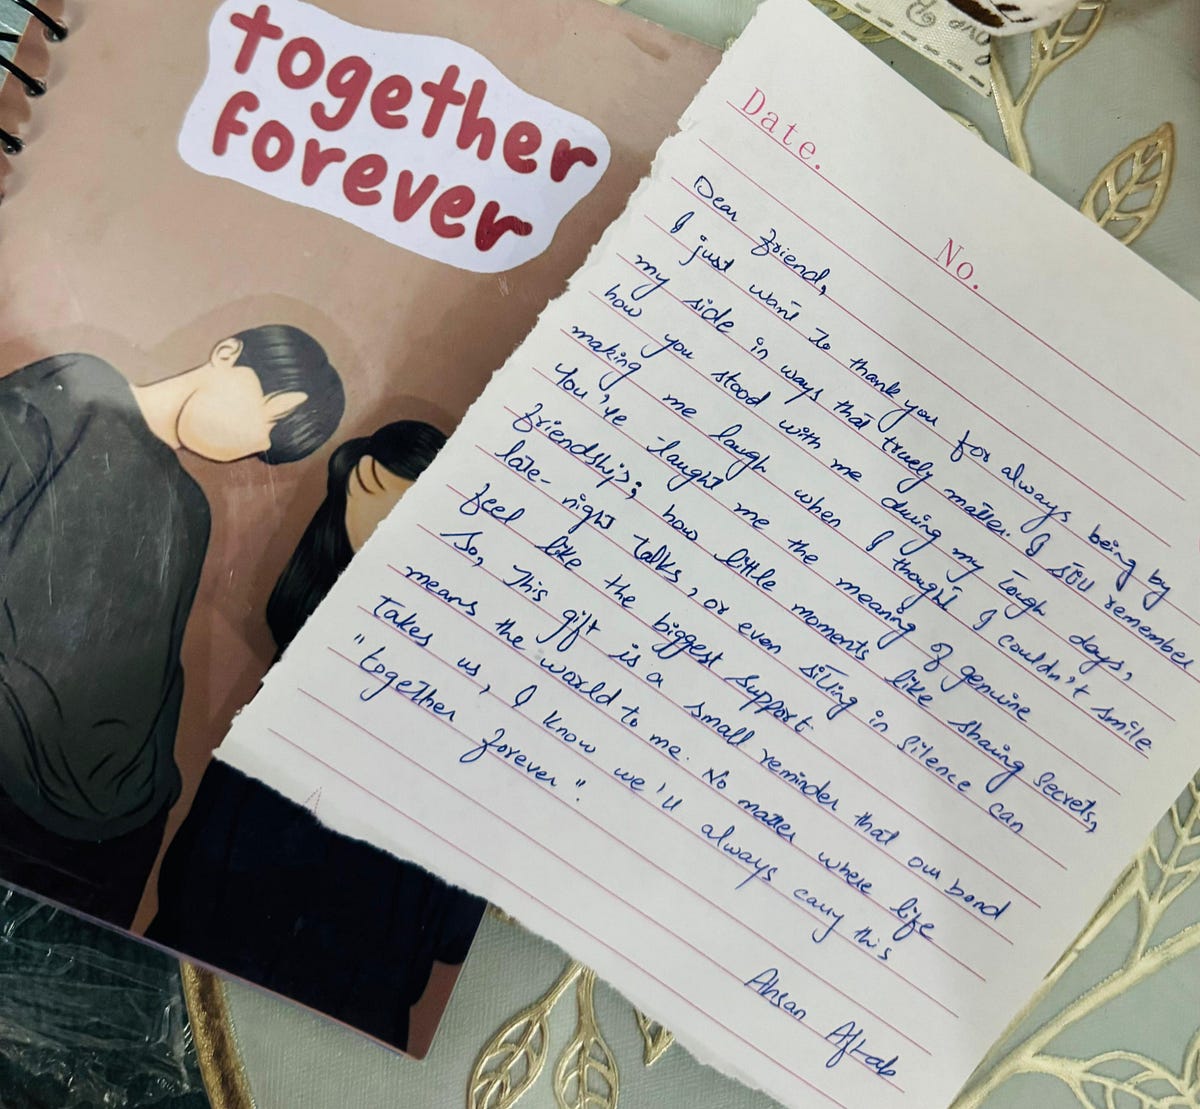 together
forever
Date.
No.
Dear friend,
I just want to thank you for always being by
my side in ways that truely matter. I still remember
how you stood with me during my tough days,
making me laugh when I thought I couldn't smile
You've taught me the meaning of genuine
friendship; how little moments like sharing secrets,
late-night talks, or even sitting in silence can
feel like the biggest support.
So, This gift is a small reminder that our bond
means the world to me. No matter where life
takes us, I know we'll always carry this
"together forever".
Ahsan Aftab